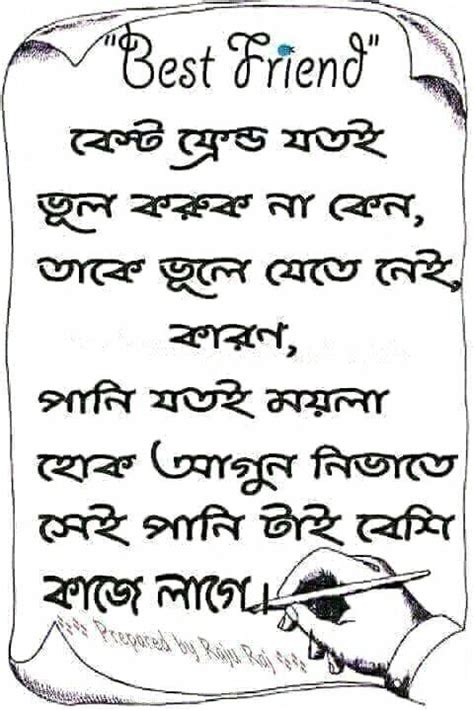 "Best Friend"
বেস্ট ফ্রেন্ড যতই
ভূল করুক না কেন,
তাকে ভূলে যেতে নেই,
কারণ,
পানি যতই ময়লা
হোক আগুন নিভাতে
সেই পানি টাই বেশি
কাজে লাগে।
Prepared by Raju Raj